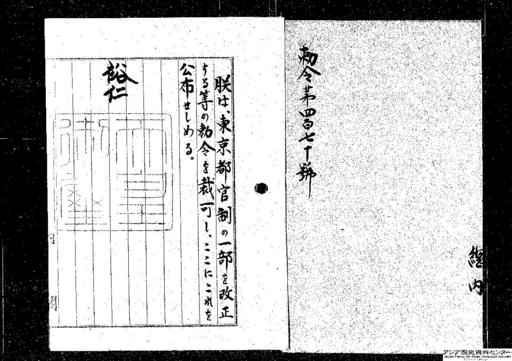 勅令第四百七十號
總内
朕は、東京都官制の一部を改正
する等の勅令を裁可し、ここにこれを
公布せしめる。
裕仁
アジア歴史資料センター